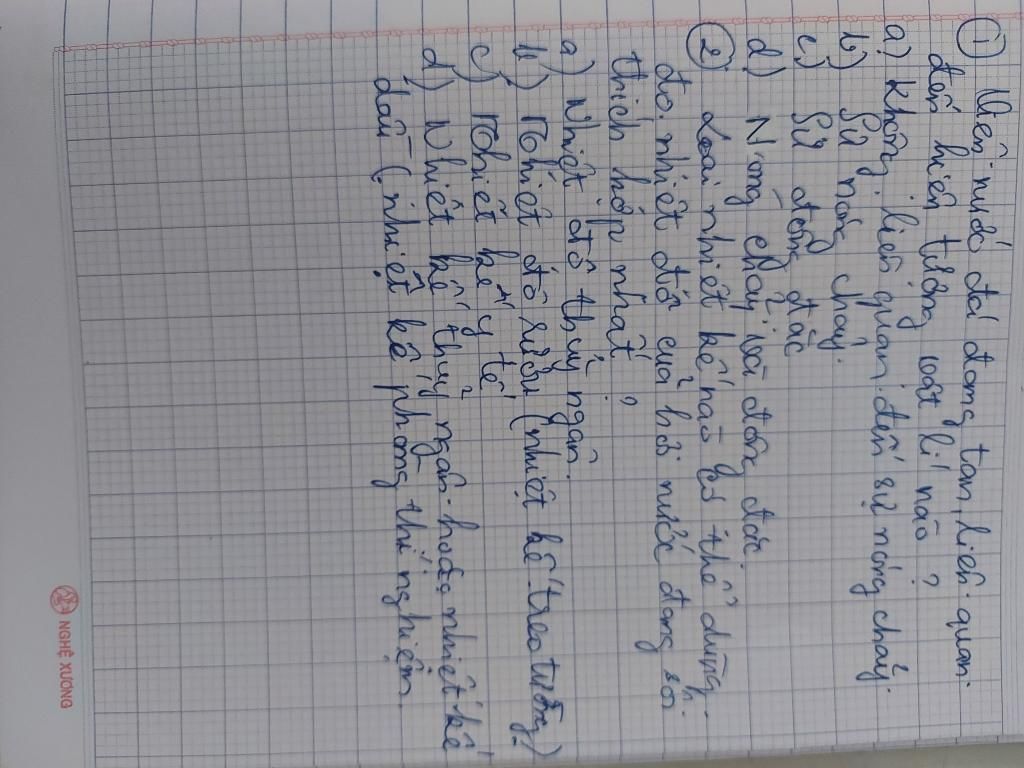 ① Viên nước đá đang tan, liên quan
đến hiện tượng vật lí nào?
a) Không liên quan đến sự nóng chảy.
b) Sự nóng chảy.
c) Sự đông đặc
d) Nóng chảy và đông đặc
② Loại nhiệt kế nào có thể dùng
đo nhiệt độ của hơi nước đang sôi
thích hợp nhất?
a) Nhiệt độ thuỷ ngân.
b) Nhiệt độ rượu (nhiệt kế treo tường)
c) Nhiệt kế y tế
d) Nhiệt kế thuỷ ngân hoặc nhiệt kế
dầu (nhiệt kế phòng thí nghiệm.
NGHÊ XƯƠNG